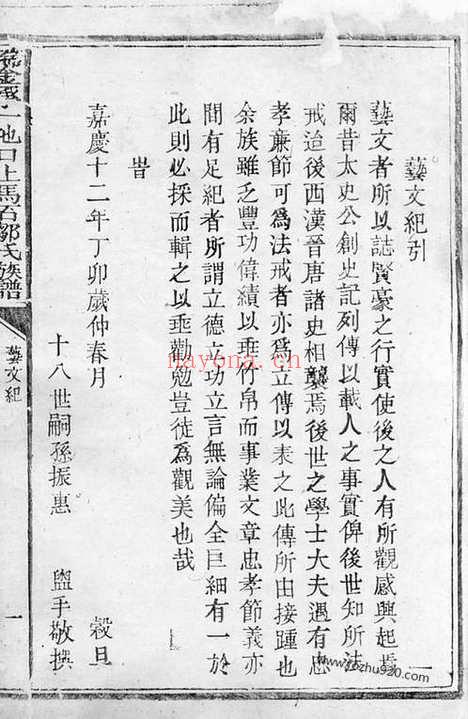 藝文紀引
藝文者所以誌賢豪之行實使後之人有所觀感興起焉
爾昔太史公創史記列傳以載人之事實俾後世知所法
戒迨後西漢晉唐諸史相襲焉後世之學士大夫遇有忠
孝廉節可為法戒者亦為立傳以表之此傳所由接踵也
余族雖乏豐功偉績以垂竹帛而事業文章忠孝節義亦
間有足紀者所謂立德立功立言無論偏全巨細有一於
此則必採而輯之以垂勸勉豈徒為觀美也哉
旹
嘉慶十二年丁卯歲仲春月 穀旦
十八世嗣孫振惠 盥手敬撰
池口上馬石鄒氏族譜
藝文紀
一
nayona.cn
www.fozhu920.com